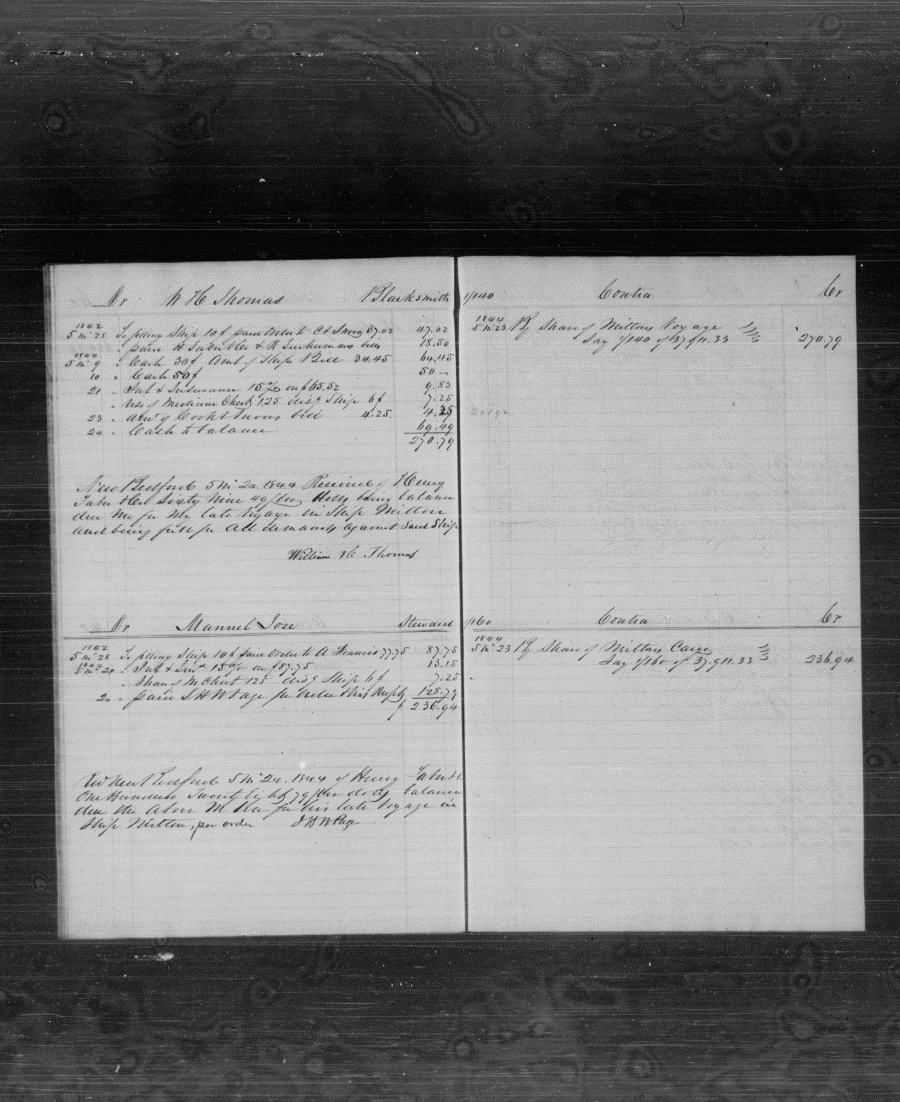 Dr W H Thomas Blacksmith 1/140 Contra Cr
1842
5 mo 28 To fitting Ship 10$ paid Orders to C & Snow 37.02 47.02
" paid H Taber & Co & R bill 18.50
1844
5 mo 9 " Cash 30$ Amt of Ships Bill 34.45 64.45
10 " Cash 50$ 50 —
21 " Int & Insurance 15 % on $65.52 9.83
" Use of Medicine Chest 1.25 disg Ship 6$ 7.25
23 " Amt of Cook & bill 4.25. 4.25
24 " Cash to balance 69.49
270.79
1844
5 mo 23 By Share of Miltons Voyage
Say 1/140 of 37911.33 270.79
New Bedford 5 mo 24 1844 Received of Henry
Taber & Co Sixty Nine 49/100 dolls being balance
due me for my late Voyage in Ship Milton
and being full for all demands against said Ship
William H Thomas
Dr Manuel Jose Steward 1/160 Contra Cr
1842
5 mo 28 To fitting Ship 10$ paid Orders to A Francis 77.75 87.75
5 mo 24 " Int & Ins 15 % on $87.75 13.15
" Share of M Chest 1.25 disg Ship 6$ 7.25
24 " paid J H W Page for 128.79
$ 236.94
1844
5 mo 23 By Share of Miltons Cargo
Say 1/160 of 37.911.33 236.94
Recd New Bedford 5 mo 24. 1844 of Henry Taber & Co
One Hundred Twenty Eight 79/100 dolls balance
due the Above for his late Voyage in
Ship Milton, per order J H W Page